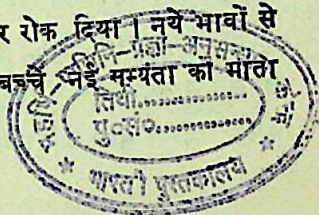 र रोक दिया । नये भावों से
बच्चे, नई सभ्यता की माता
तिथी
पु॰स॰
भारती पुस्तकालय